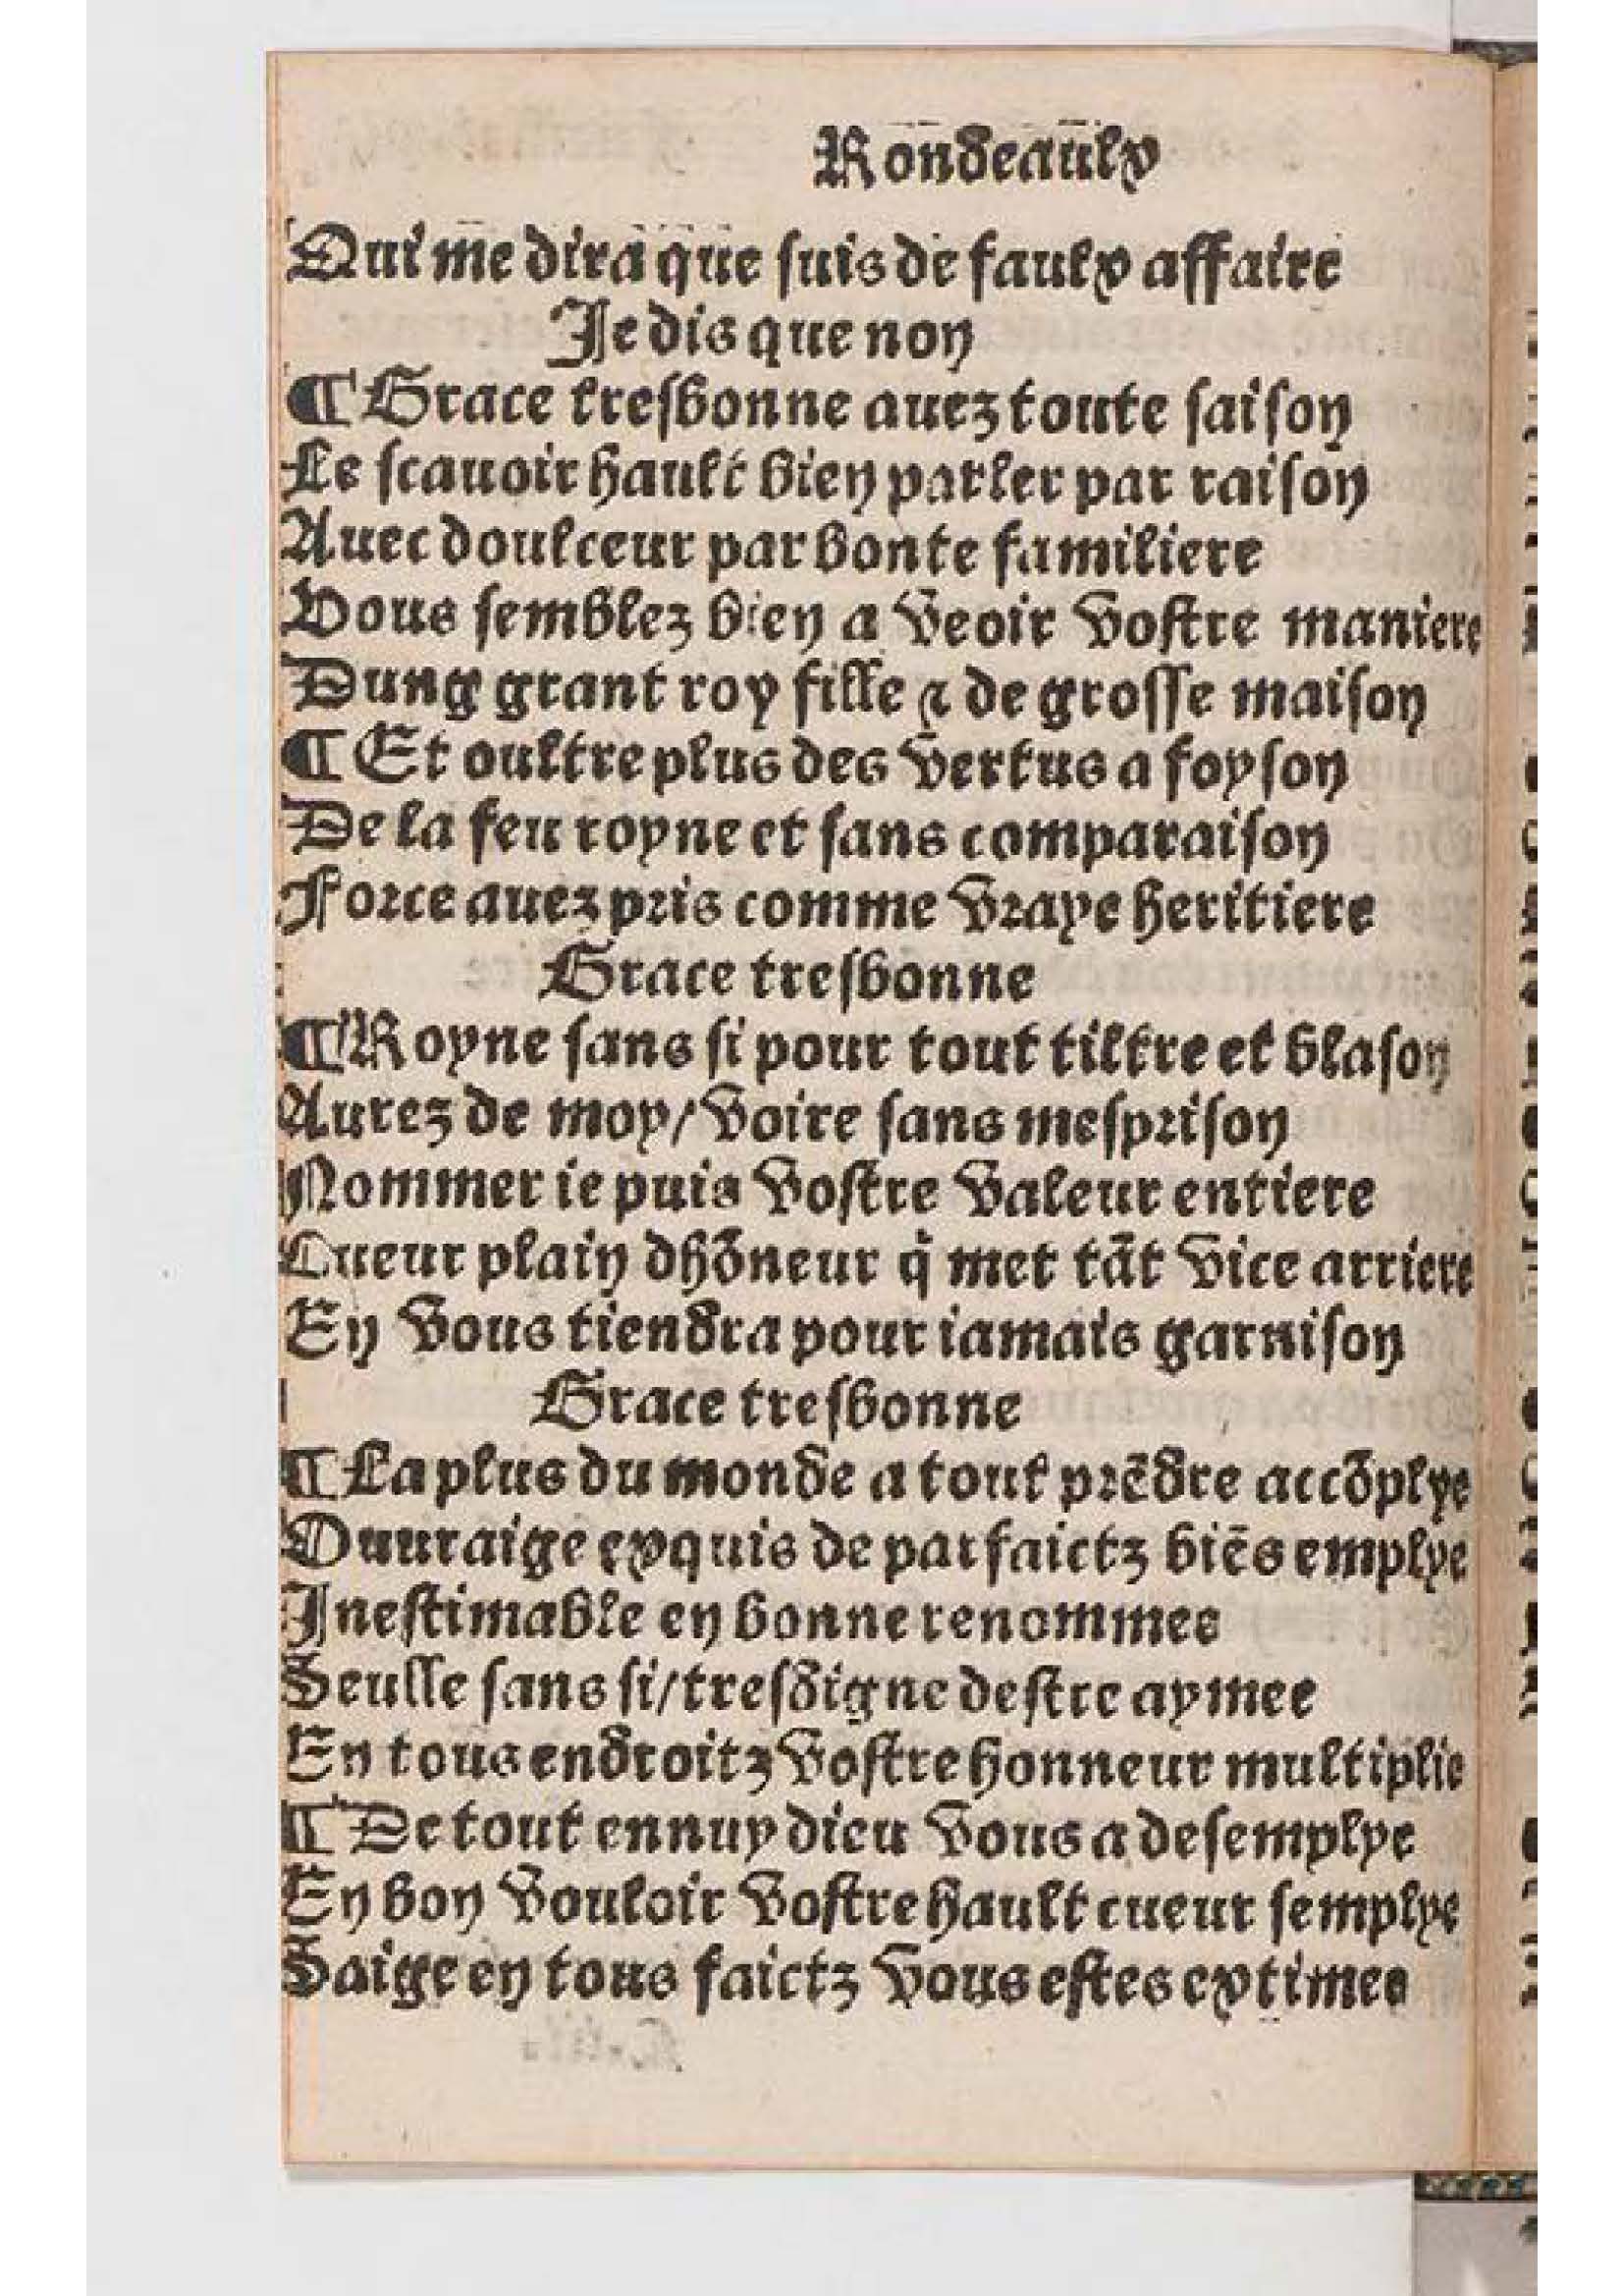 Rondeaulx
Qui me dira que suis de faulx affaire
Je dis que non
¶ Grace tresbonne auez toute saison
Le scauoir hault bien parler par raison
Auec doulceur par bonte familiere
Vous semblez bien a veoir vostre maniere
Dung grant roy fille ⁊ de grosse maison
¶ Et oultre plus des vertus a foyson
De la feu royne et sans comparaison
Force auez pris comme vraye heritiere
Grace tresbonne
¶ Royne sans si pour tout tiltre et blason
Aurez de moy/ voire sans mesprison
Nommer ie puis vostre valeur entiere
Cueur plain dhõneur q̃ met tãt vice arriere
En vous tiendra pour iamais garnison
Grace tresbonne
¶ La plus du monde a tout prẽdre accõplye
Ouuraige exquis de parfaictz biẽs emplye
Inestimable en bonne renommee
Seulle sans si/ tresdigne destre aymee
En tous endroitz vostre honneur multiplie
¶ De tout ennuy dieu vous a desemplye
En bon vouloir vostre hault cueur semplye
Saige en tous faictz vous estes extimee